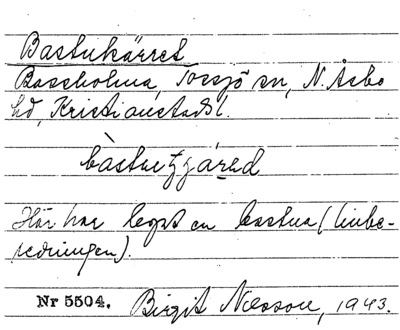 Bastukärret
Bassholma, Tossjö sn, N. Åsbo
hd, Kristianstads l.
Här har legat en bastua (linbe-
redningen).
Nr 5504. Birgit Nilsson, 1943.